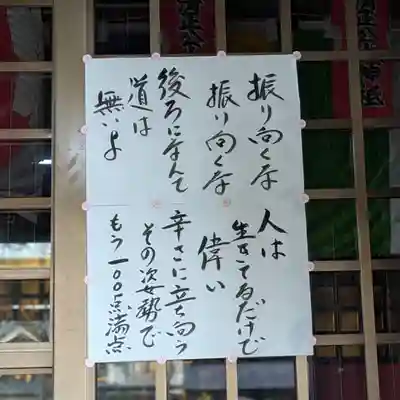 振り向くな
振り向くな
後ろになんて
道は
無いよ
人は
生きてるだけで
偉い
辛さに立ち向う
その姿勢で
もう一〇〇点満点